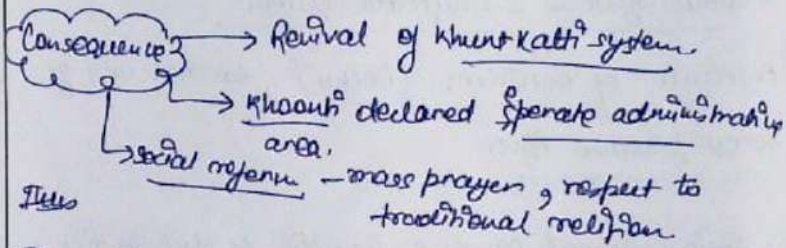 Consequence → Revival of Khuntkatti system.
→ Khoonti declared sperate administrative
area.
→ social reform - mass prayer, respect to
traditional religion.
Thus